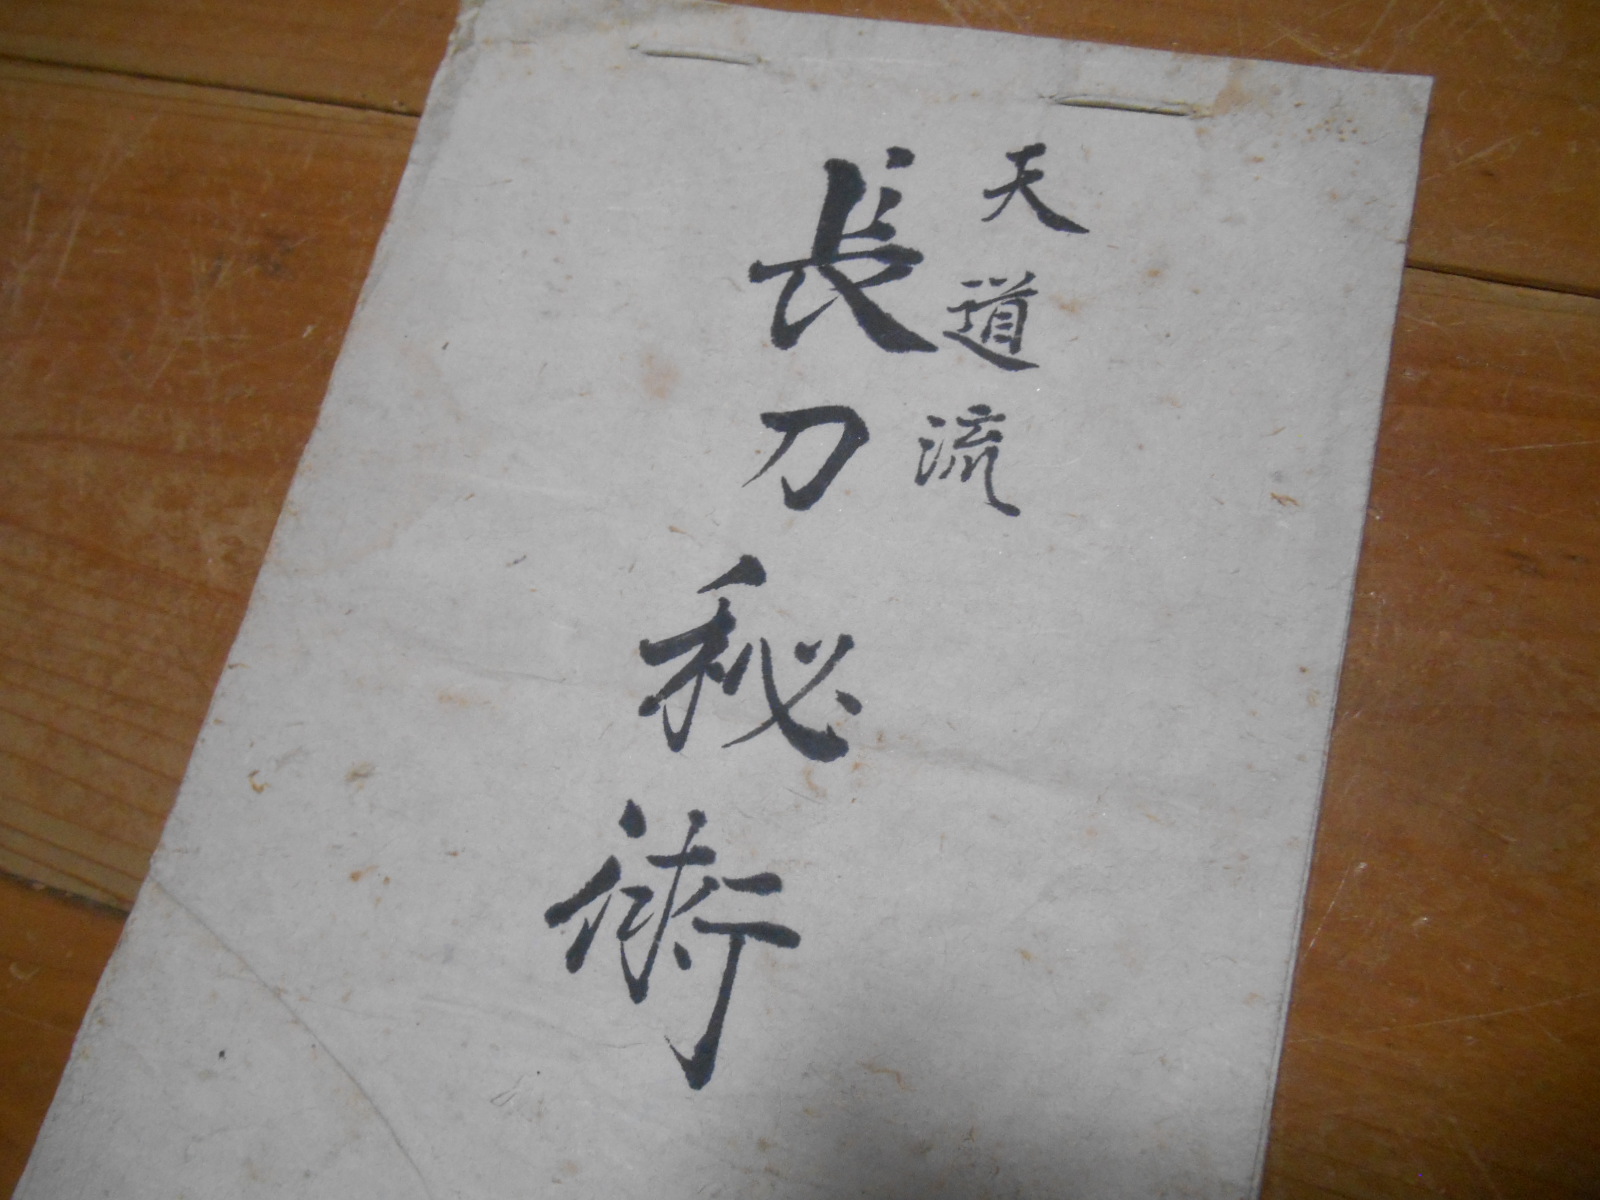 天道流
長刀秘術